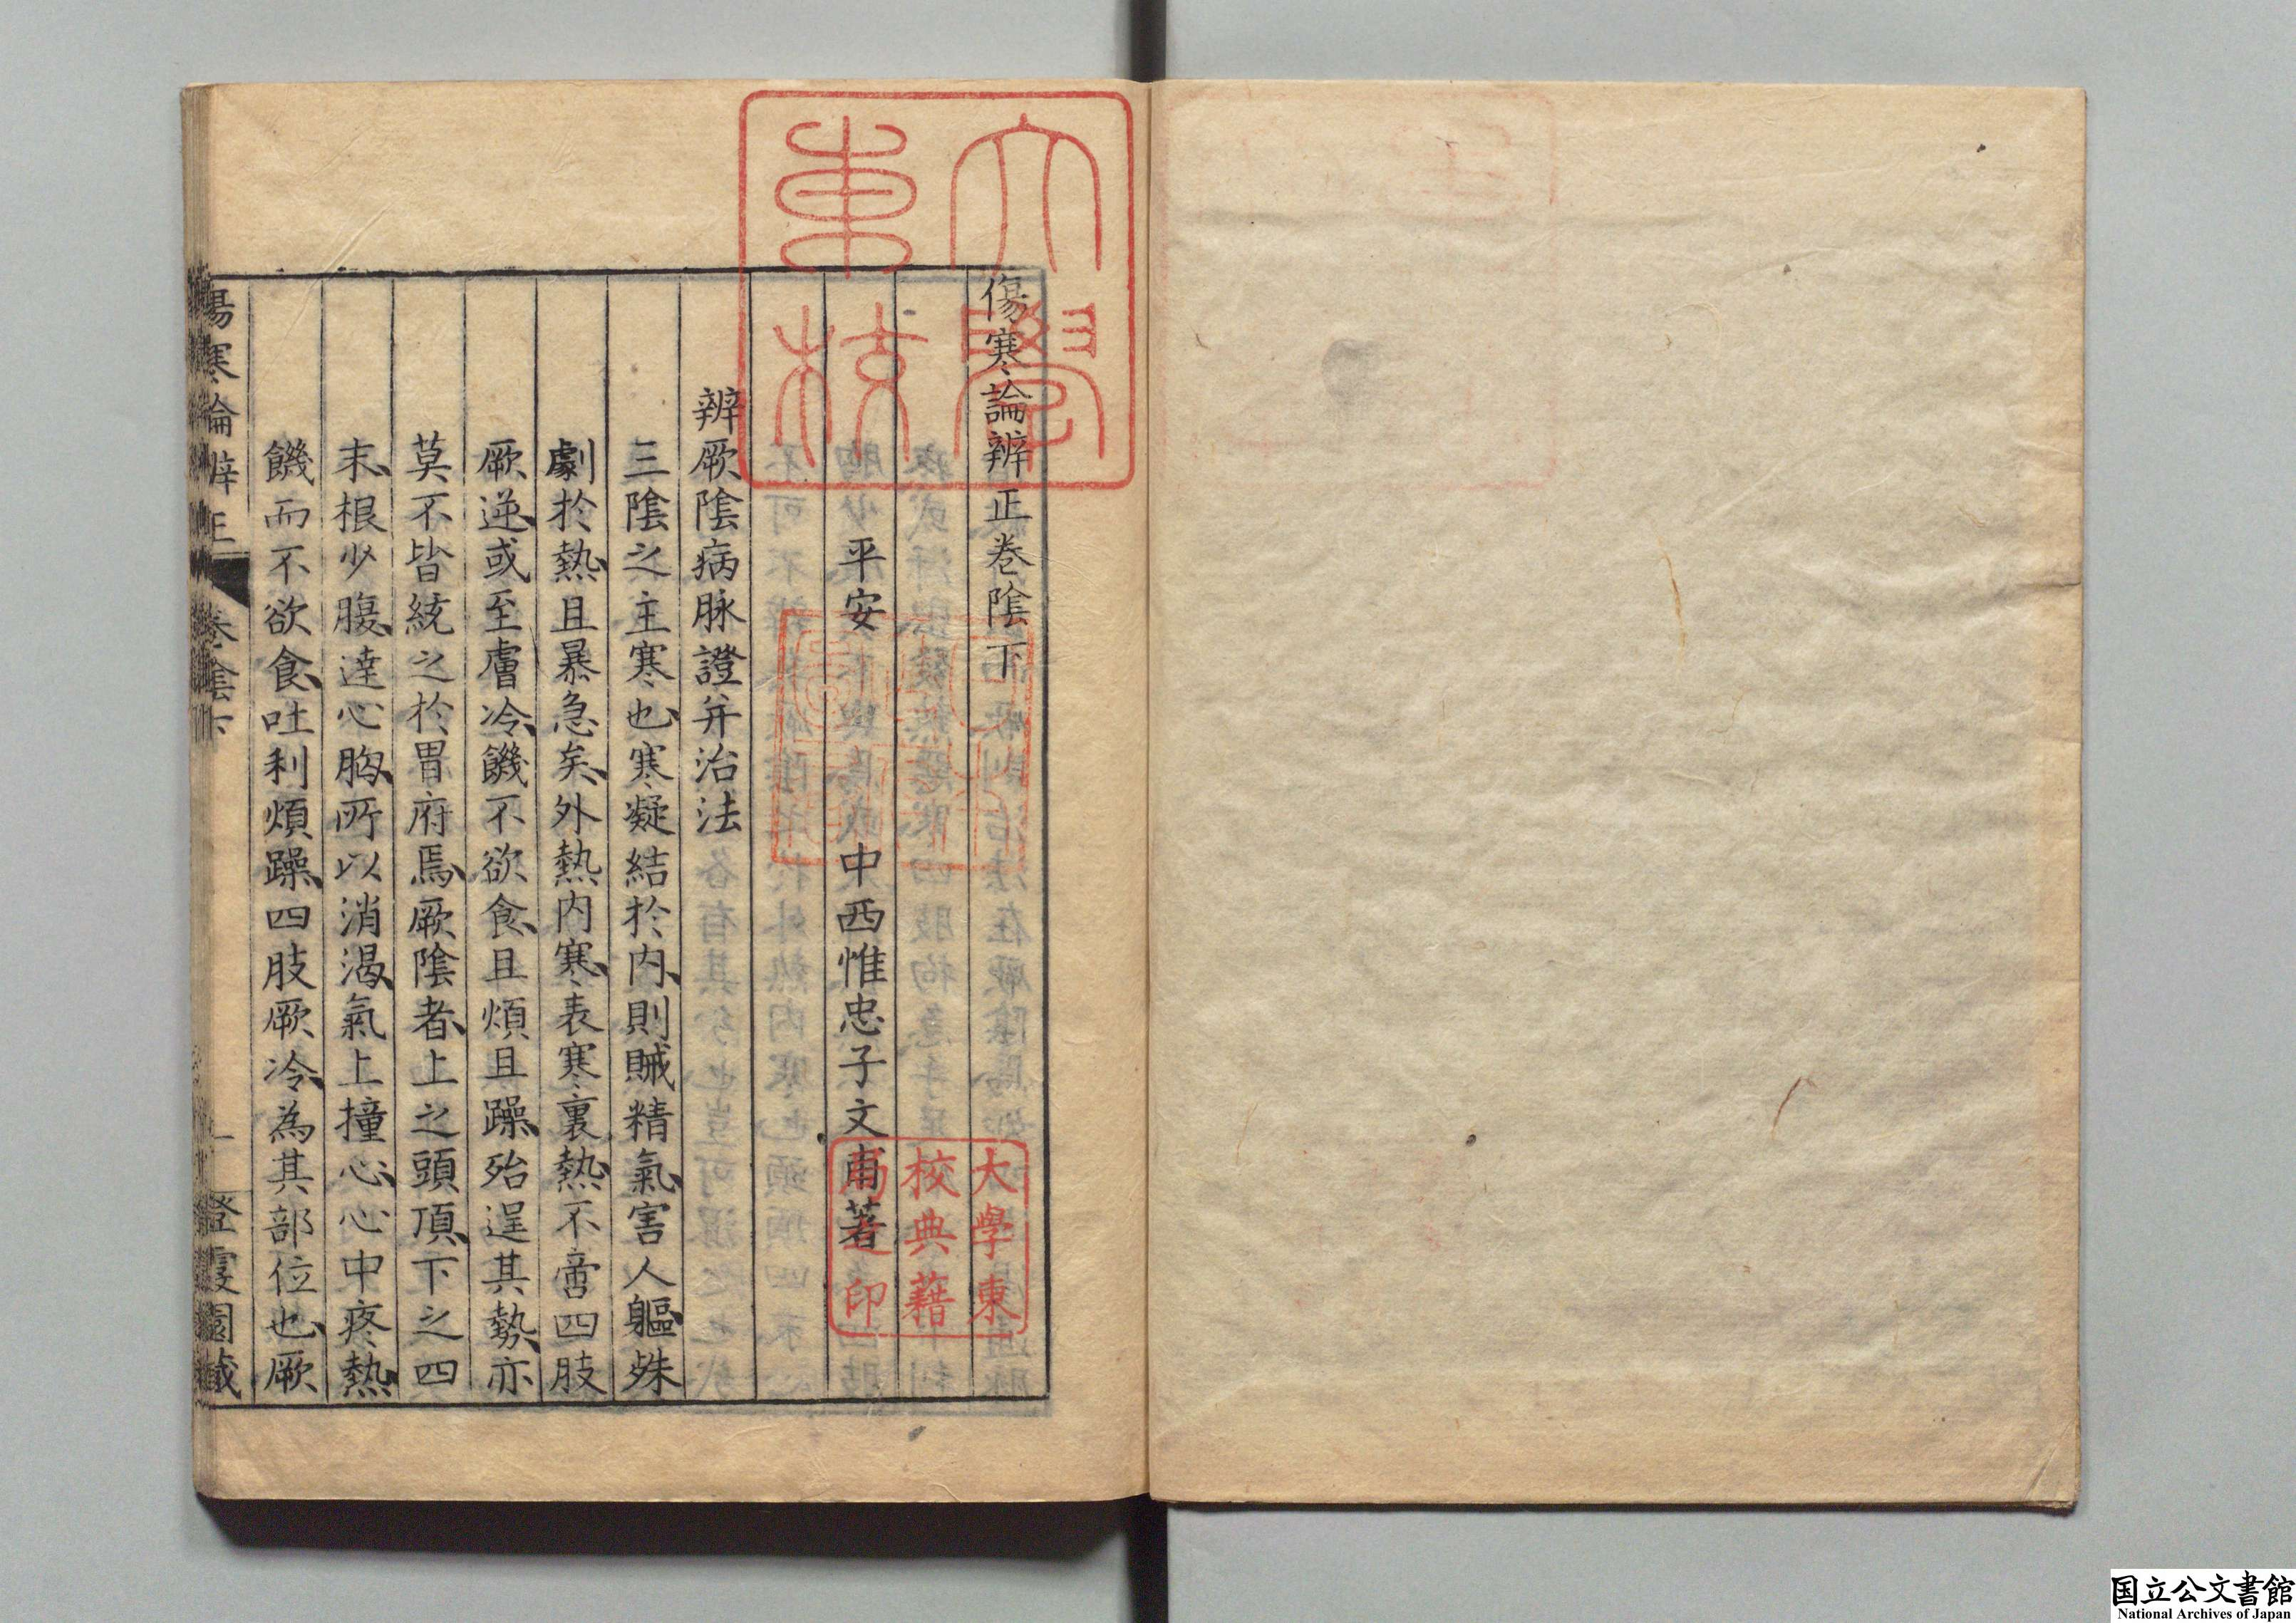 傷寒論辨正卷陰下
平安　中西惟忠子文甫著
辨厥陰病脉證并治法
三陰之主寒也、寒凝結於内、則賊精氣、害人軀、殊
劇於熱、且暴急矣、外熱内寒、表寒裏熱、不啻四肢
厥逆、或至膚冷、饑不欲食、且煩且躁、殆逞其勢、亦
莫不皆統之於胃府焉、厥陰者、上之頭頂、下之四
末、根少腹、達心胸、所以消渴、氣上撞心、心中疼熱、
饑而不欲食、吐利煩躁、四肢厥冷、為其部位也、厥
傷寒論辨正
卷陰下
一
澄霞園藏
大學東校
大學東
校典籍
局之印
国立公文書館
National Archives of Japan